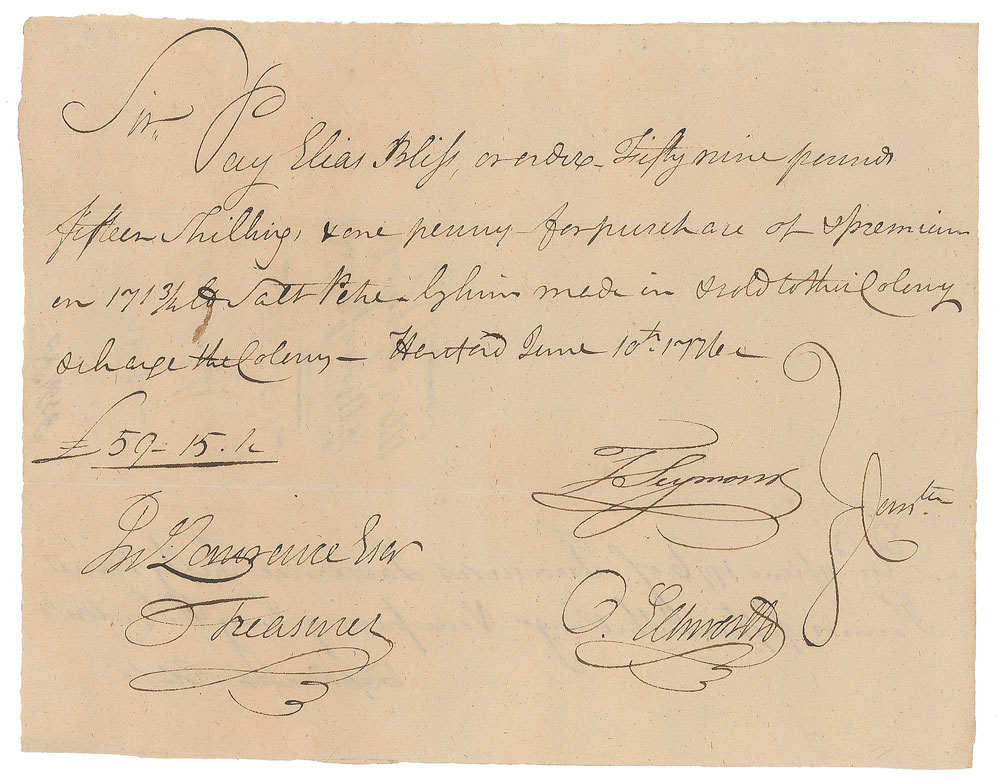 Sir,
Pay Elias Bliss, or order Fifty nine pounds
fifteen Shillings & one penny for purchase of & premium
on 171 3/4 lb Salt Petre by him made in & sold to this Colony
& charge the Colony — Hartford June 10th. 1776
£ 59 - 15. 1
T Seymour
Jno. Lawrance Esqr
Treasurer
O. Ellsworth